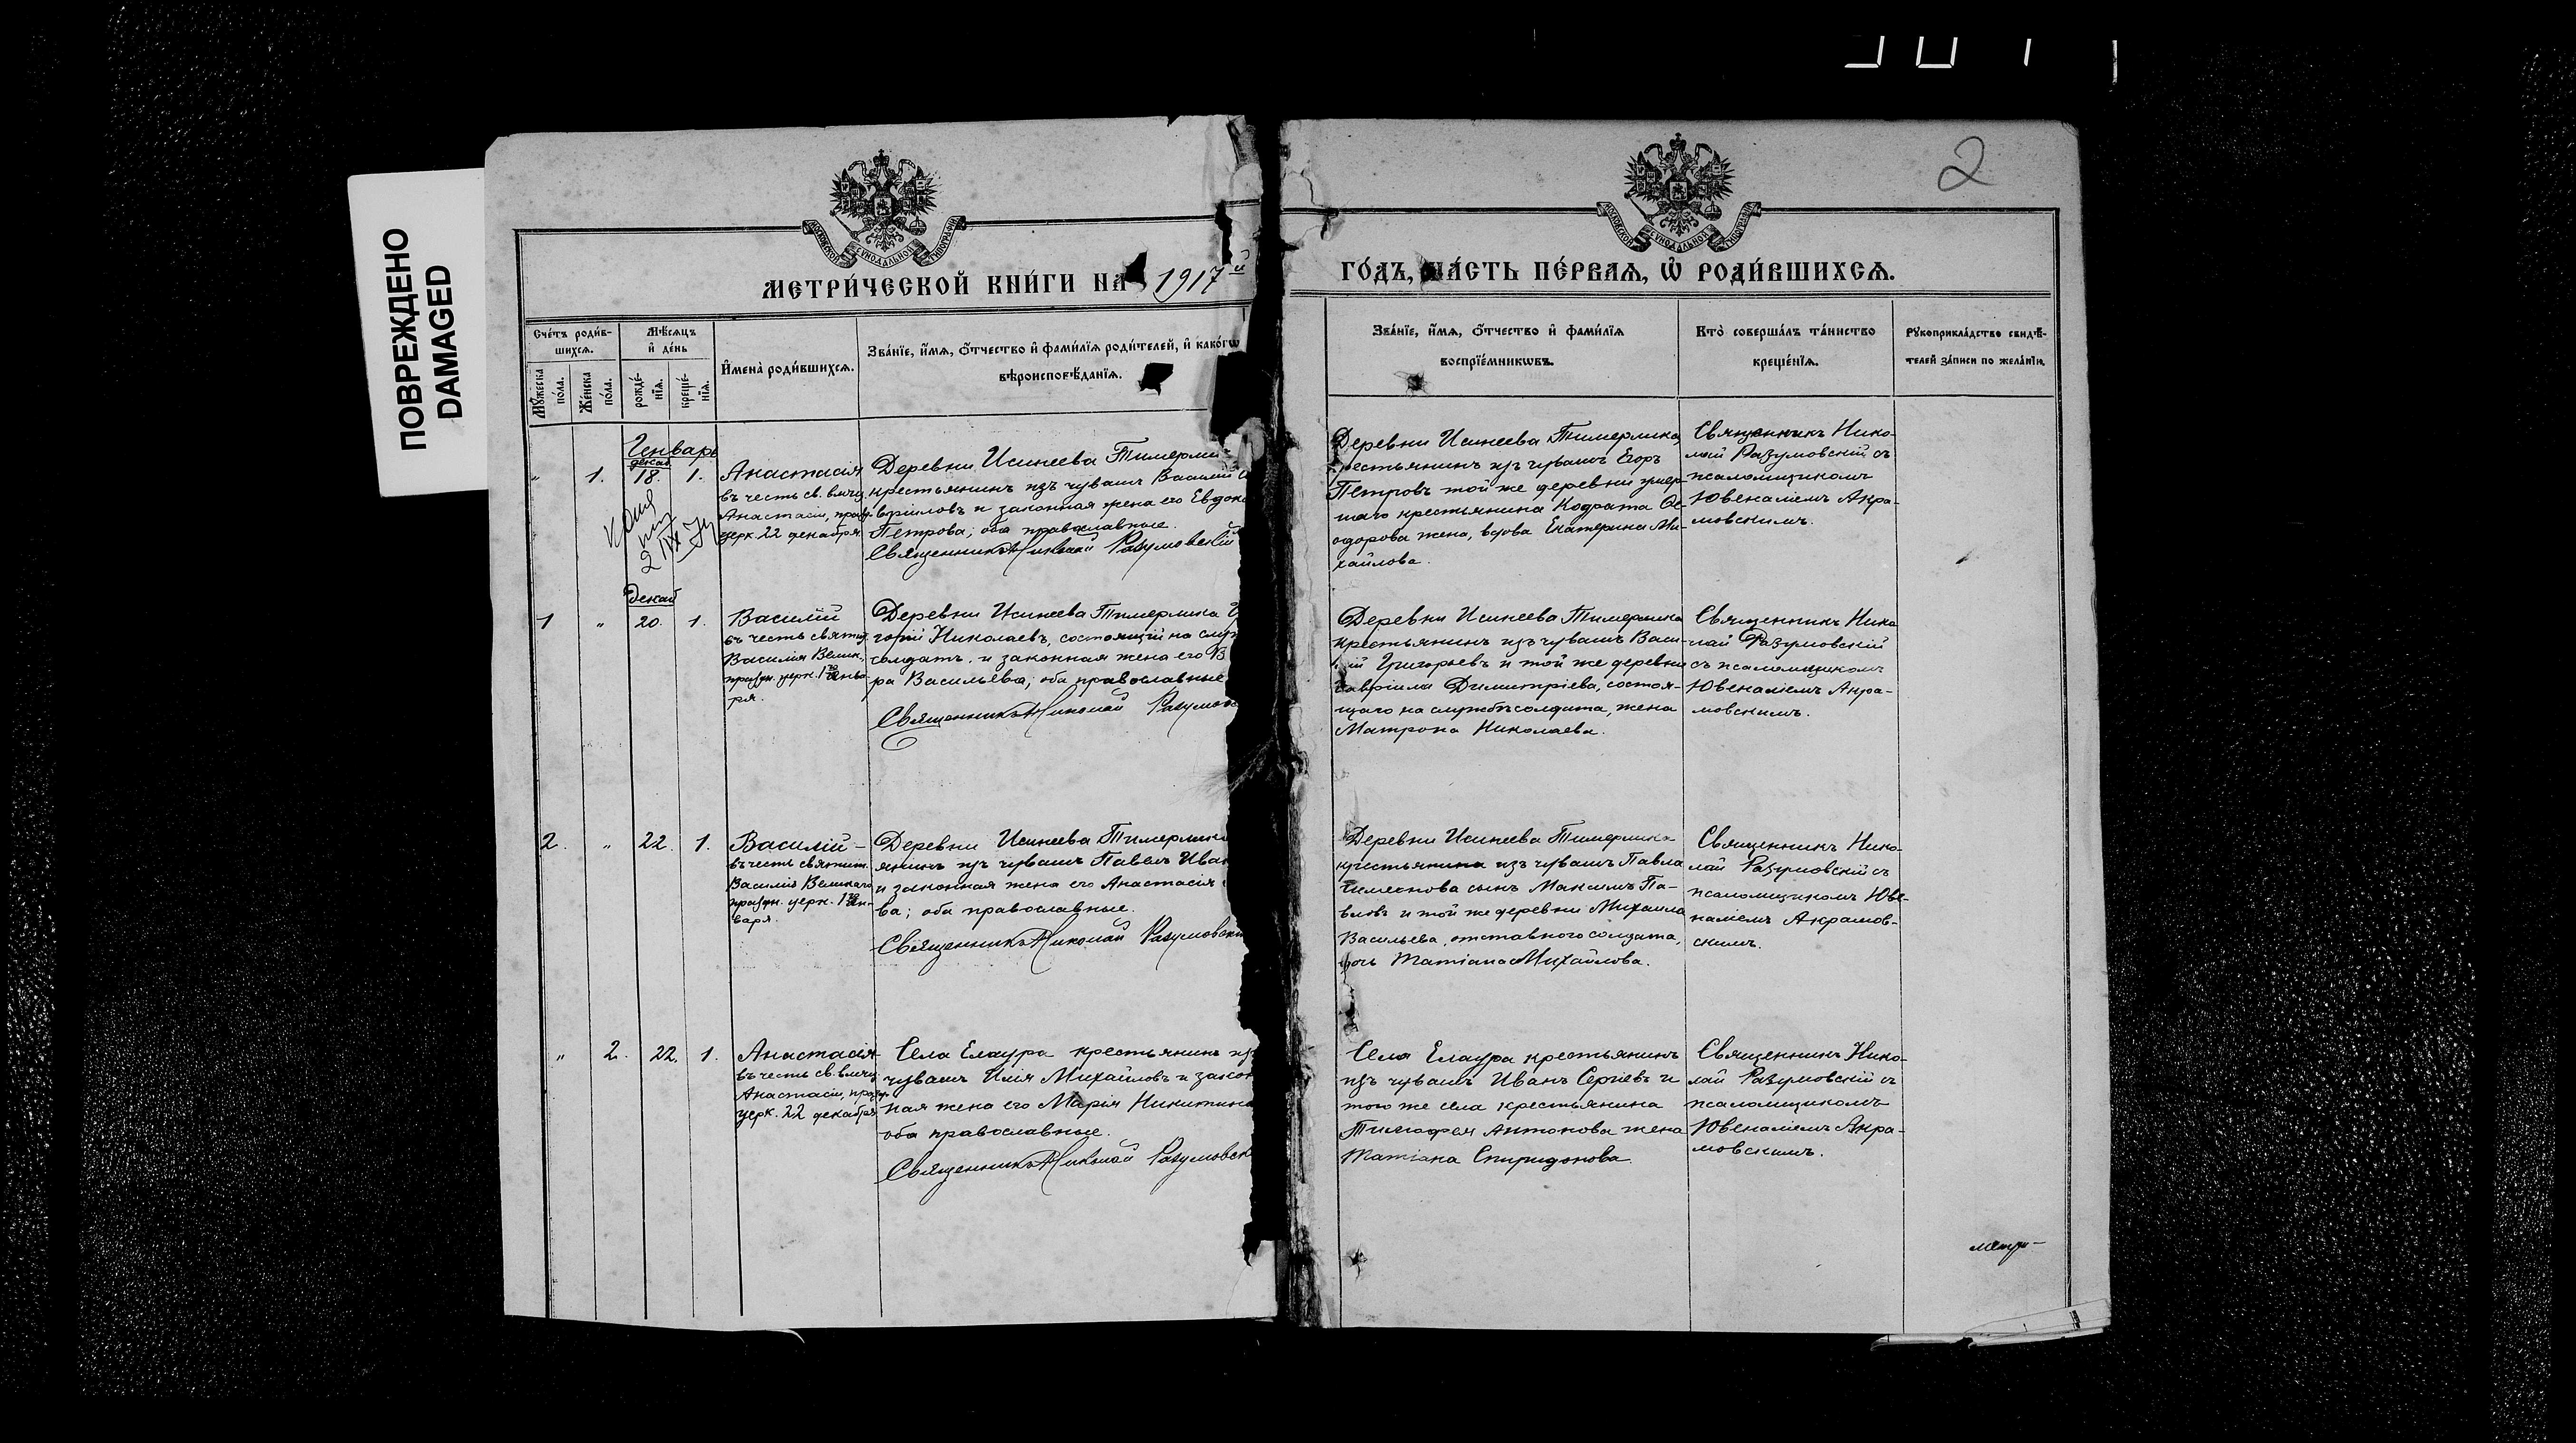 ПОВРЕЖДЕНО
DAMAGED
2
МЕТРИ́ЧЕСКОЙ КНИ́ГИ НА 1917й
ГО́ДЪ, ЧА́СТЬ ПЕ́РВАЯ, Ѿ РОДИ́ВШИХСЯ.
Сче́тъ роди́в-
шихся.
Мѣ́сяцъ
и҆ де́нь
Мꙋ́жеска
по́ла.
Же́нска
по́ла.
рожде́-
нїя.
креще́-
нїя.
И҆мена̀ роди́вшихся.
Зва́нїе, и҆́мя, ѻ҆́тчество и҆ фами́лїя роди́телей, и҆ како́гѡ
вѣроисповѣ́данїя.
Зва́нїе, и҆́мя, ѻ҆́тчество и҆ фами́лїя
воспрїе́мникѡвъ.
Кто̀ соверша́лъ та́инство
креще́нїя.
Рꙋкоприкла́дство свидѣ́-
телей за́писи по жела́нїю.
Генварь
декаб.
" 1. 18. 1.
Анастасія
въ честь св. влмч.
Анастасіи, празд.
церк. 22 декабря
Деревни Исинеева Тимерли
крестьянинъ изъ чувашъ Василій
вріиловъ и законная жена его Евдок
Петрова; оба православные.
Священникъ Николай Разумовскій
Деревни Исинеева Тимерлика,
крестьянинъ изъ чувашъ Егоръ
Петровъ той же деревни умер-
шаго крестьянина Кодрата Ѳе-
одорова жена, вдова Екатерина Ми-
хайлова.
Священникъ Нико-
лай Разумовскій съ
псаломщикомъ
Ювеналіемъ Акра-
мовскимъ.
декаб
1 " 20. 1.
Василій
въ честь святит.
Василія Велик.,
праздн. церк. 1го генва-
ря.
Деревни Исинеева Тимерлика
горій Николаевъ, состоящій на служ
солдатъ, и законная жена его В
ра Васильева; оба православные
Священникъ Николай Разумов
Деревни Исинеева Тимерлика
крестьянинъ изъ чувашъ Васи-
лій Григорьевъ и той же деревни
Гавріила Димитріева, состоя-
щаго на службѣ солдата, жена
Матрона Николаева.
Священникъ Нико
лай Разумовскій
съ псаломщикомъ
Ювеналіемъ Акра-
мовскимъ.
2. " 22. 1.
Василій -
въ честь святит.
Василія Великаго
праздн. церк. 1го ген-
варя.
Деревни Исинеева Тимерлик
янинъ изъ чувашъ Павелъ Иван
и законная жена его Анастасія
ва; оба православные.
Священникъ Николай Разумовск
Деревни Исинеева Тимерлика
крестьянина изъ чувашъ Павла
сынъ Максимъ Па-
вловъ и той же деревни Михаила
Васильева, отставного солдата,
дочь Татіана Михайлова.
Священникъ Нико-
лай Разумовскій съ
псаломщикомъ Юве-
наліемъ Акрамов-
скимъ.
" 2. 22. 1.
Анастасія
въ честь св. влмч.
Анастасіи, празд.
церк. 22 декабря
Села Елаура крестьянинъ изъ
чувашъ Илія Михайловъ и закон
ная жена его Марія Никитина
оба православные.
Священникъ Николай Разумовск
Села Елаура крестьянинъ
изъ чувашъ Иванъ Сергіевъ и
того же села крестьянина
Тимофея Антонова жена
Татіана Спиридонова.
Священникъ Нико-
лай Разумовскій съ
псаломщикомъ
Ювеналіемъ Акра-
мовскимъ.
метри-